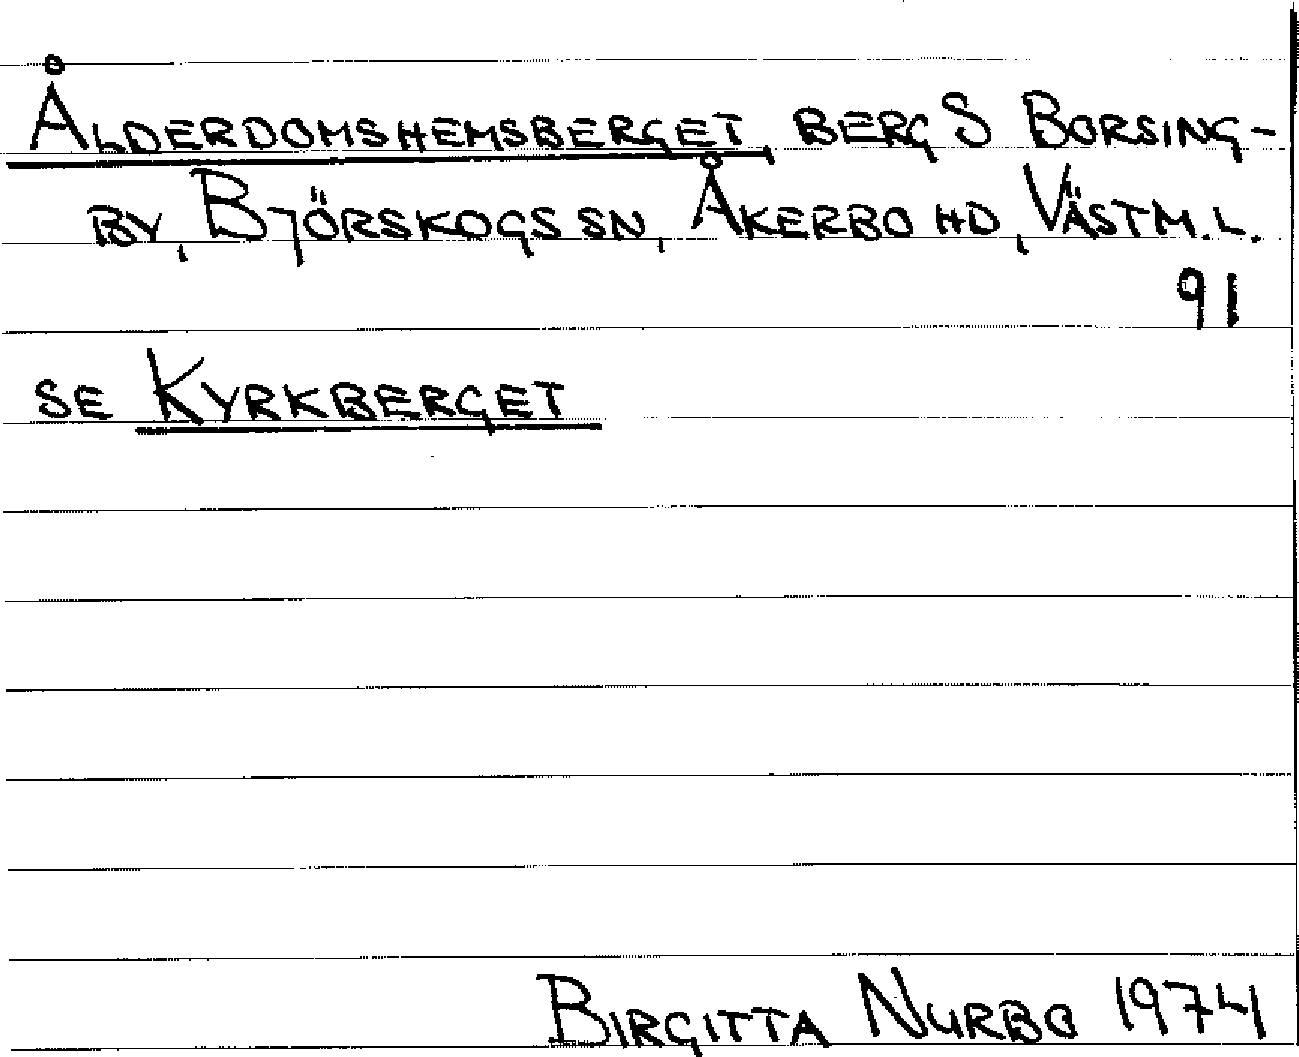 ÅLDERDOMSHEMSBERGET, BERG S BORSING-
BY, BJÖRSKOGS SN, ÅKERBO HD, VÄSTM.L.
91
SE KYRKBERGET
BIRGITTA NURBO 1974